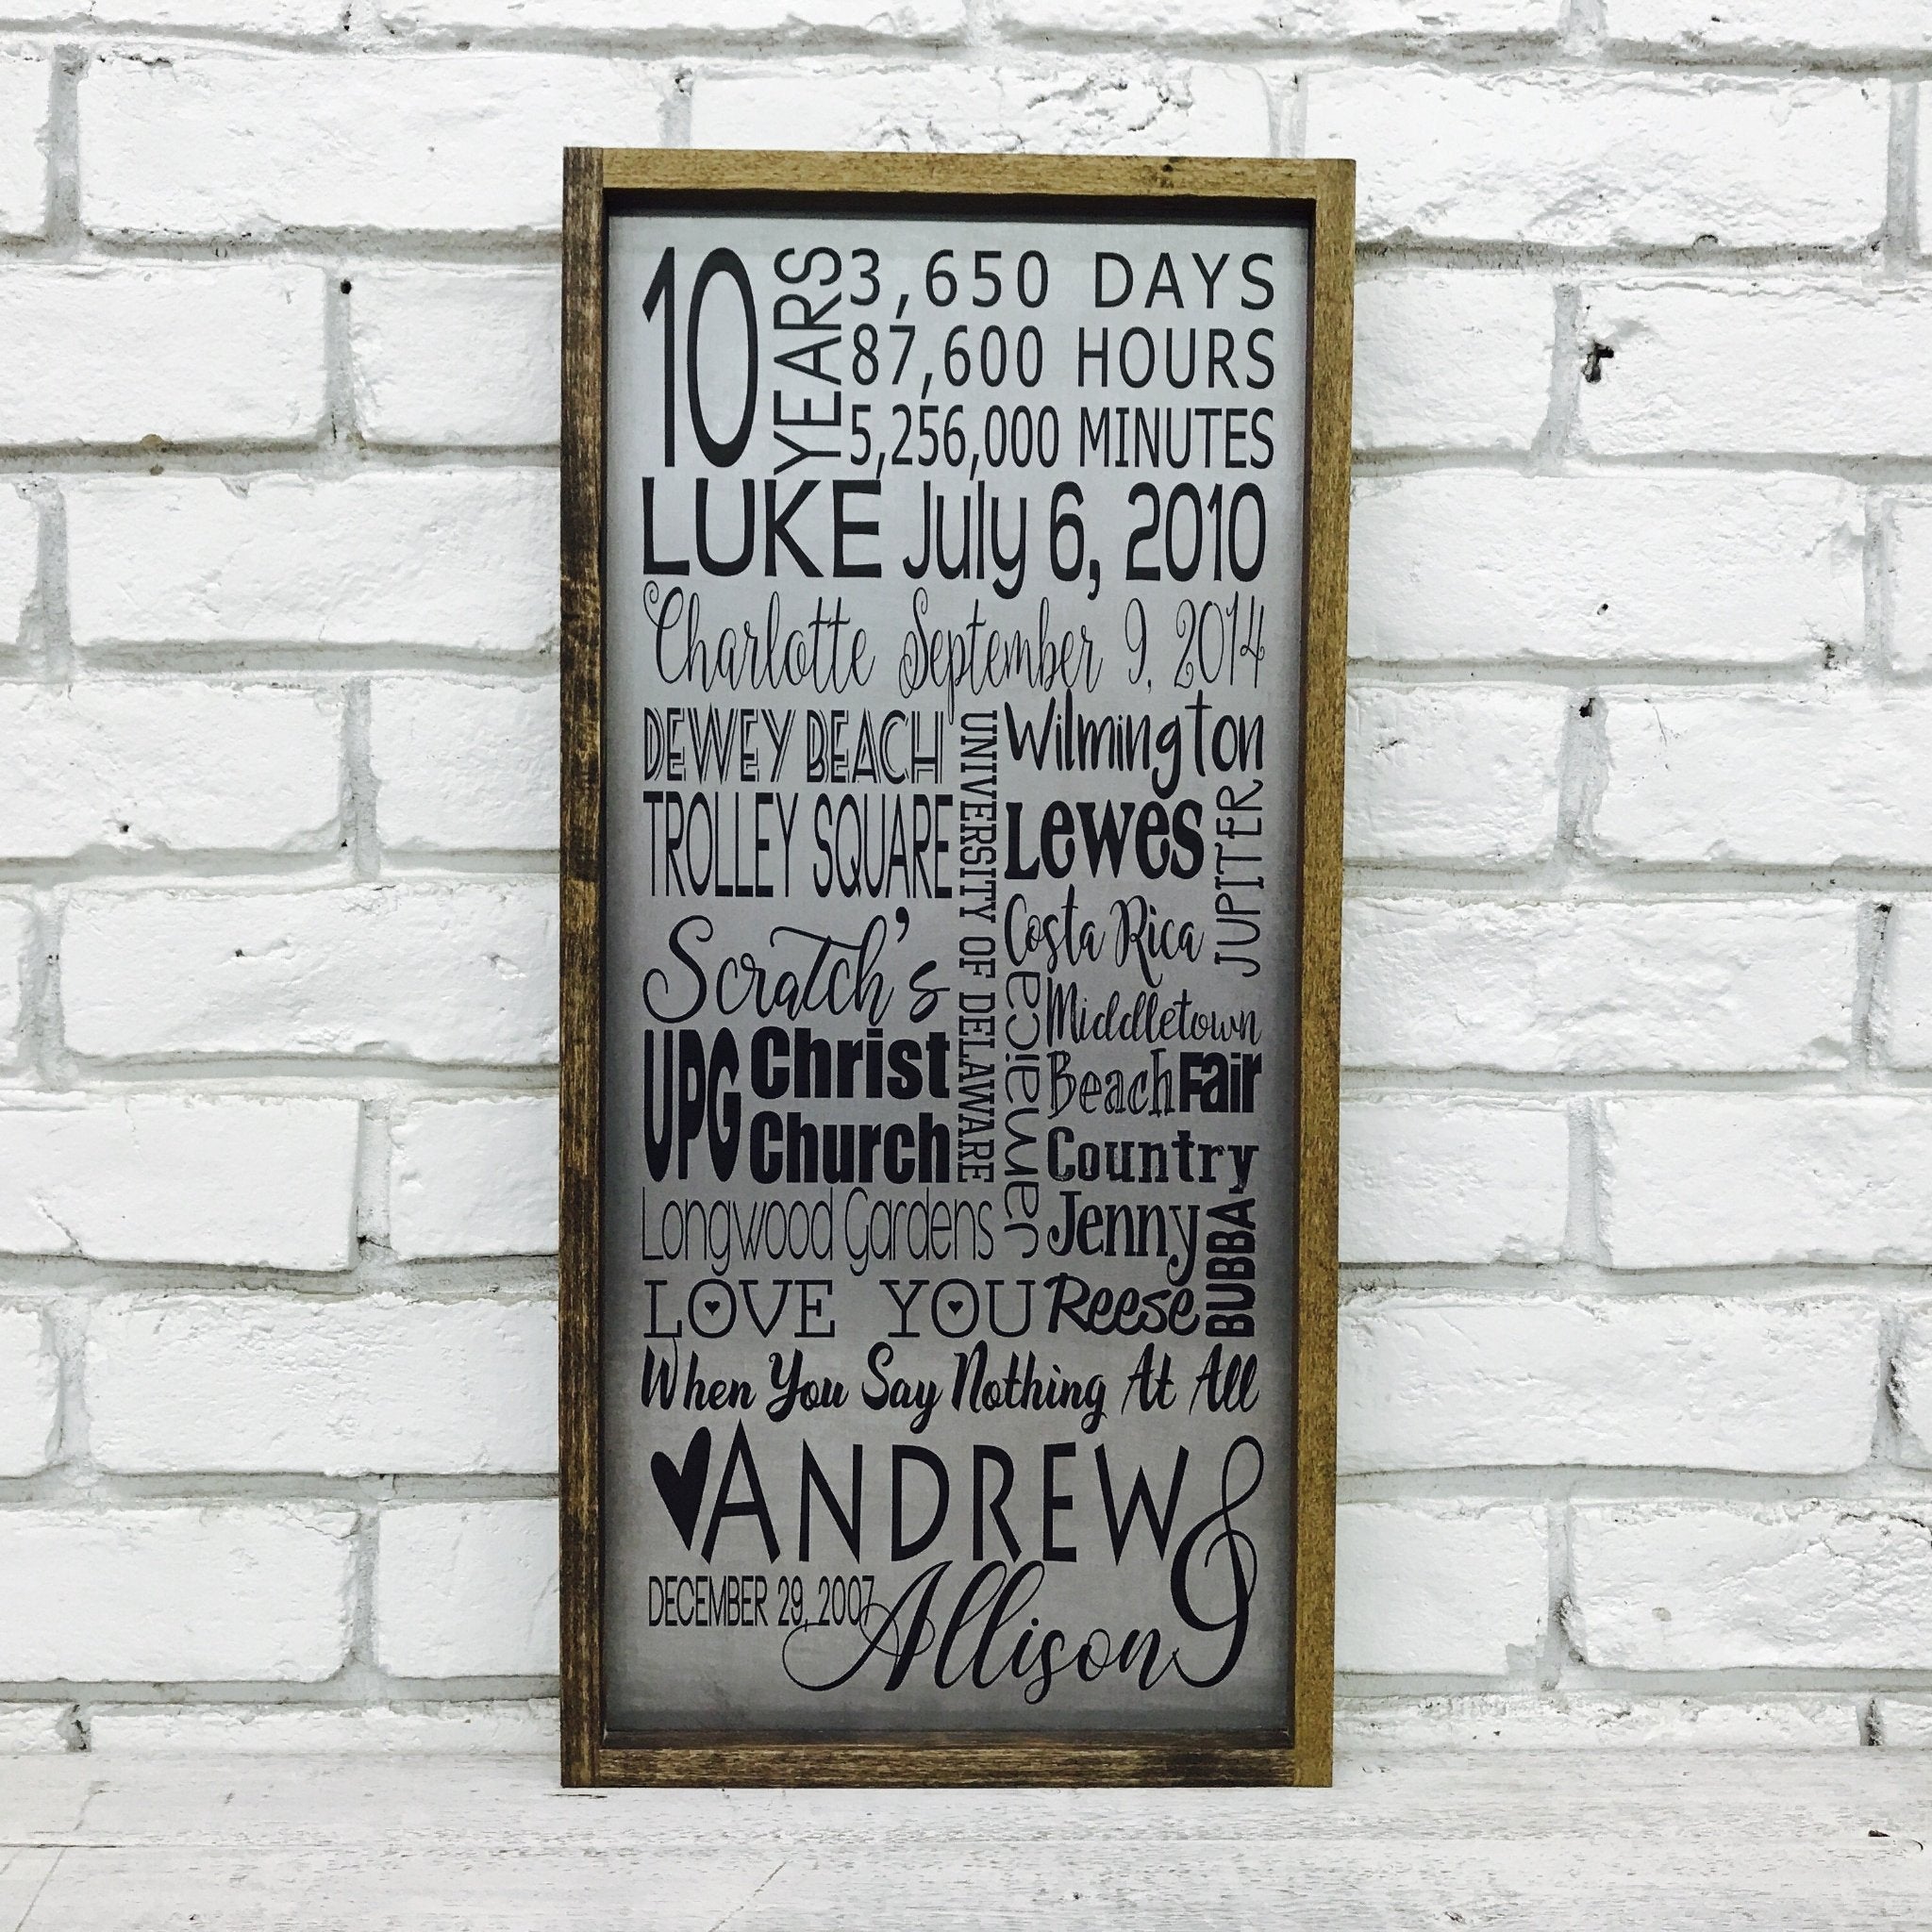 10 YEARS
3,650 DAYS
87,600 HOURS
5,256,000 MINUTES
LUKE July 6, 2010
Charlotte September 9, 2014
DEWEY BEACH
TROLLEY SQUARE
Scratch's
UPG Christ
Church
UNIVERSITY OF DELAWARE
Wilmington
Lewes
JUPITER
Costa Rica
Jamaica
Middletown
Beach Fair
Country
Jenny
BUBBA
Longwood Gardens
LOVE YOU Reese
When You Say Nothing At All
ANDREW &
DECEMBER 29, 2007 Allison